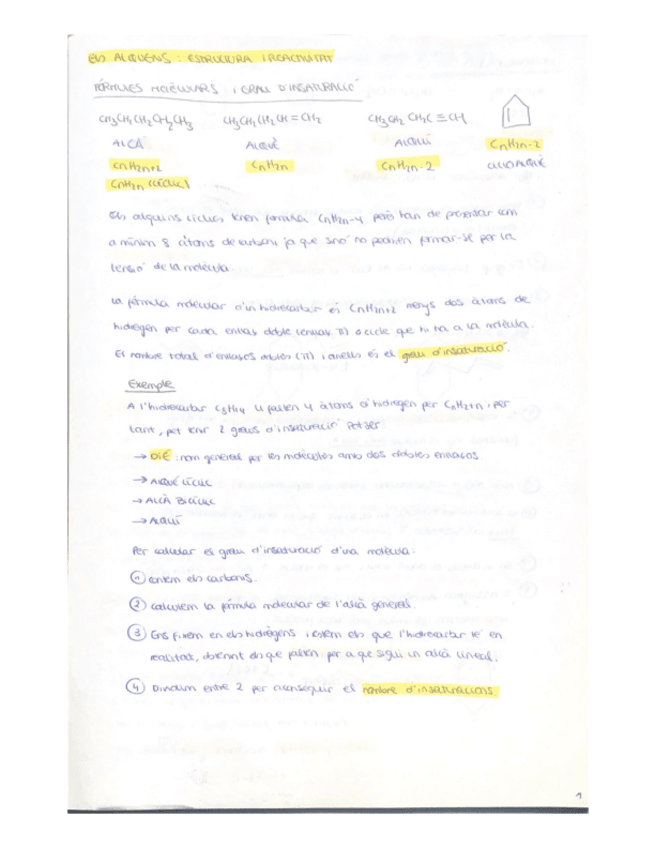 ELS ALQUENS : ESTRUCTURA I REACTIVITAT
FÓRMULES MOLÈCULARS I GRAU D'INSATURACIÓ
CH3CH2CH2CH2CH3 CH3CH2CH2CH=CH2 CH3CH2CH2C≡CH
ALCÀ ALQUÈ ALQUÍ CnH2n-2
CnH2n+2 CnH2n CnH2n-2 CICLOALQUÈ
CnH2n (CÍCLIC)
Els alquins cíclics tenen fórmula CnH2n-4 però han de presentar com
a mínim 8 àtoms de carboni ja que sinó no podrien formar-se per la
tensió de la molècula
La fórmula molècular d'un hidrocarbur és CnH2n+2 menys dos àtoms de
hidrogen per cada enllaç doble (enllaç π) o cicle que hi ha a la molècula.
El nombre total d'enllaços dobles (π) i anells és el grau d'insaturació.
Exemple
A l'hidrocarbur C8H14 li falten 4 àtoms d'hidrogen per CnH2+n, per
tant, pot tenir 2 graus d'insaturació. Pot ser
→ DIÉ : nom general per les molècules amb dos dobles enllaços
→ ALQUÈ CÍCLIC
→ ALCÀ BICÍCLIC
→ ALQUÍ
Per calcular el grau d'insaturació d'una molècula:
1 Contem els carbonis.
2 Calculem la fórmula molecular de l'alcà general.
3 Ens fixem en els hidrògens i restem els que l'hidrocarbur té en
realitat, obtenint els que falten per a que sigui un alcà lineal.
4 Dividim entre 2 per aconseguir el nombre d'insaturacions.
1